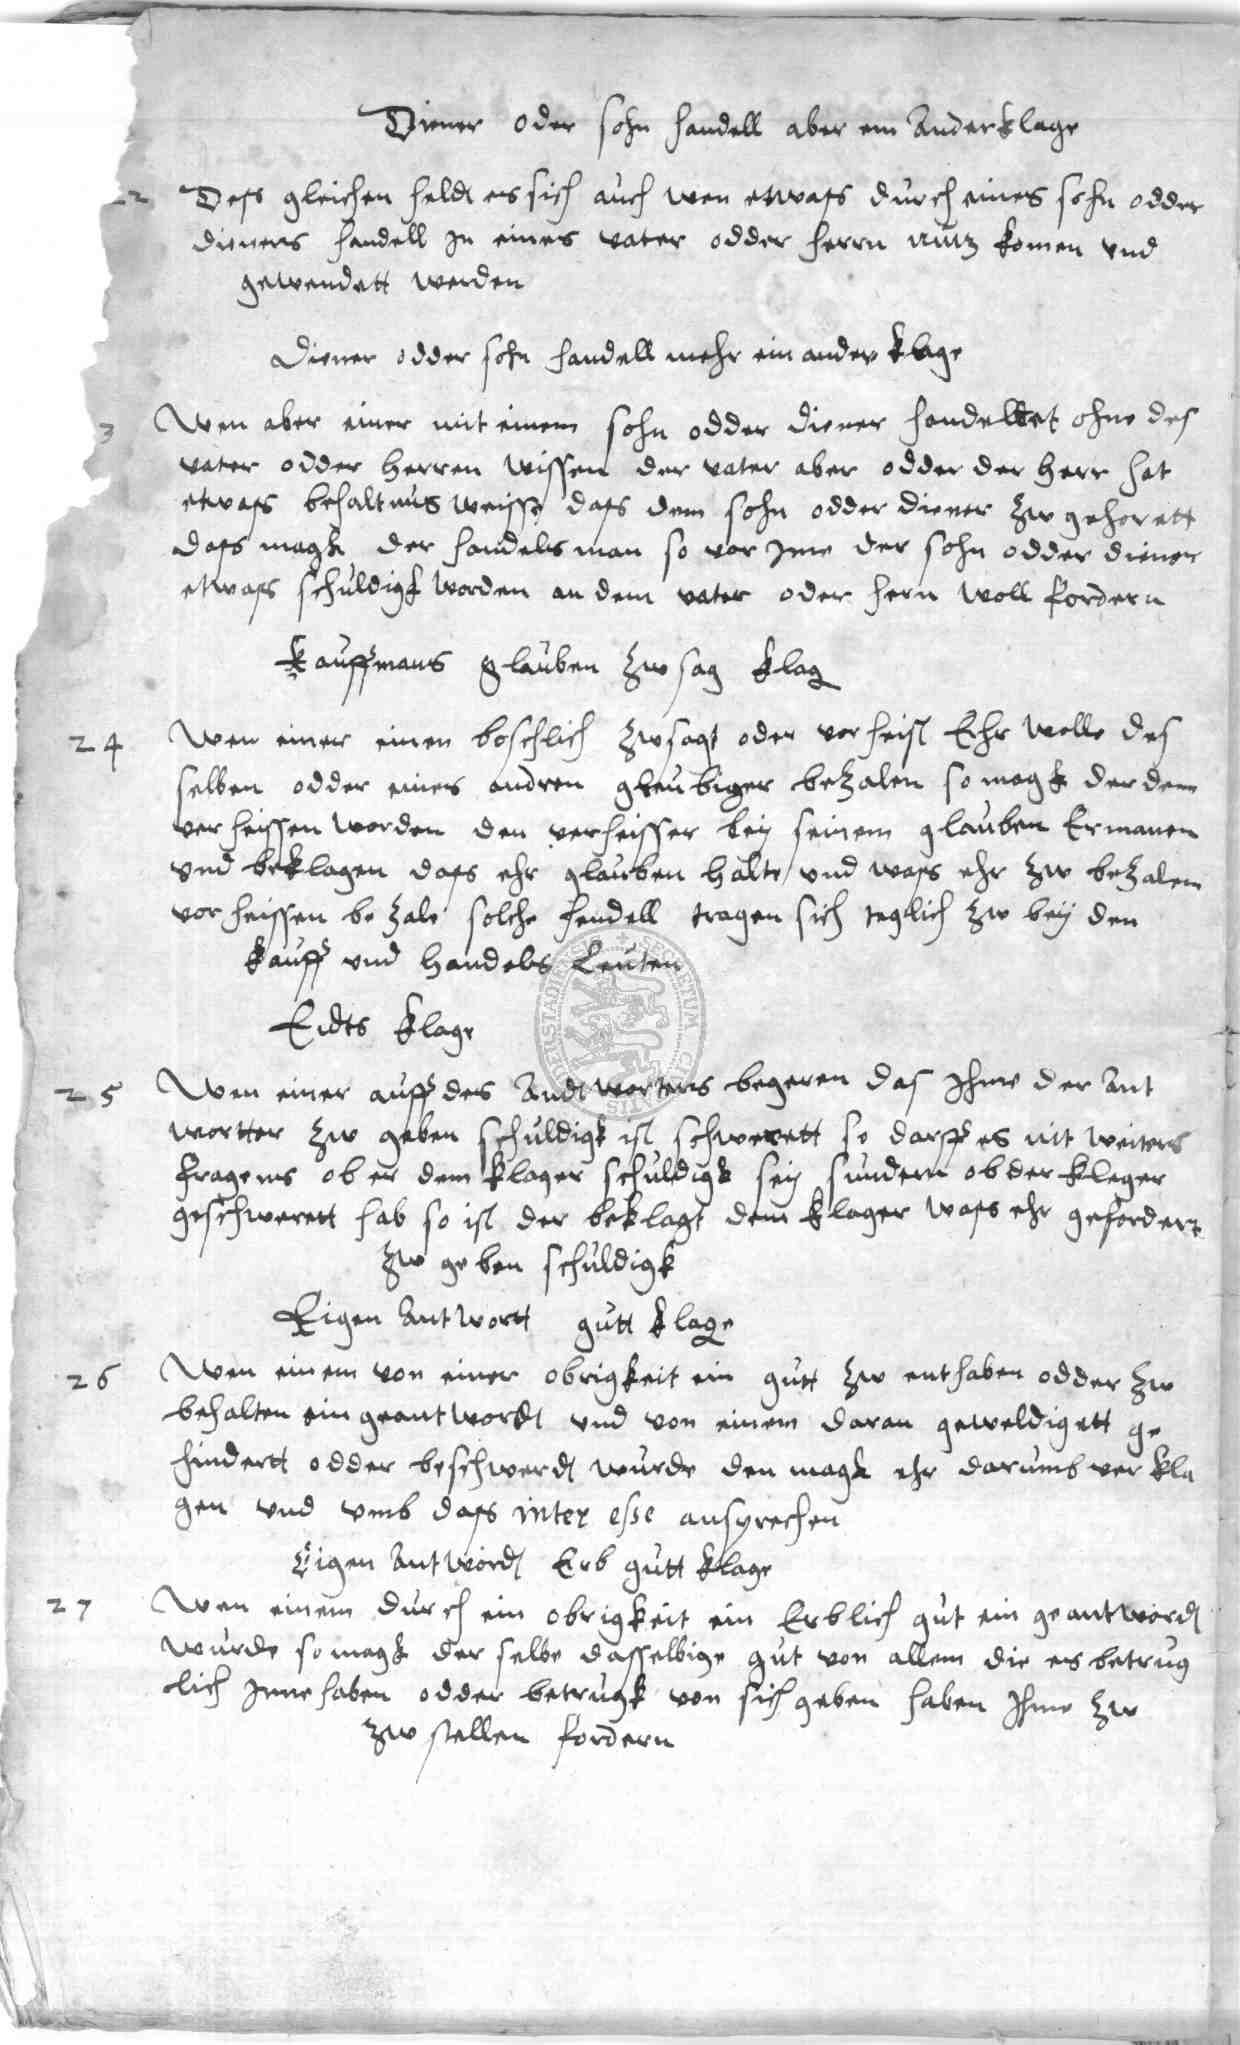 Diener oder sohn handell aber ein Ander klage
22 Dess gleichen heldt es sich auch wen etwass durch eines sohn odder
dieners handell In eines vater odder herrn nutz komen vnd
gewendett werden
Diener odder sohn handell mehr ein ander klage
3 Wen aber einer mit einem sohn odder diener handelltet ohne des
vater odder herren wissen der vater aber odder der herr hat
etwass behaltnus weisse dass dem sohn odder diener zw gehorett
dass magk der handels man so vor Jme der sohn odder diener
etwass schuldigk worden an dem vater oder hern woll fordern
kauffmans glauben zw sag klag
24 Wen einer einen boschlich zwsagt oder vorheist Ehr wolle des
selben odder eines andren gleubiger bezalen so magk der dem
verheissen worden den verheisser bey seinem glauben Ermanen
vnd beklagen dass ehr glauben halte vnd wass ehr zw bezalem
vorheissen bezale solche hendell tragen sich teglich zw bey den
kauff vnd handels Leuten
Eidts klage
25 Wen einer auff des Andtworters begeren das Ihme der Ant
wortter zw geben schuldigk ist schwerett so darff es nit weiters
fragens ob er dem klager schuldigk sey sundern ob der kleger
geschwerett hab so ist der beklagt dem klager wass ehr gefordert
zw geben schuldigk
Eigen Antwortt gutt klage
26 Wen einem von einer obrigkeit ein gutt zw enthaben odder zw
behalten ein geantwordt vnd von einem daran geweldigett ge
hindertt odder beschwerdt wurde den magk ehr darumb verkla
gen vnd vmb dass inter esse ansprechen
Eigen Antwordt Erb gutt klage
27 Wen einem durch ein obrigkeit ein Erblich gut ein geantwordt
wurde so magk der selbe dasselbige gut von allem die es betrug
lich Inne haben odder betrugk von sich geben haben Ihme zw
zw stellen fordern